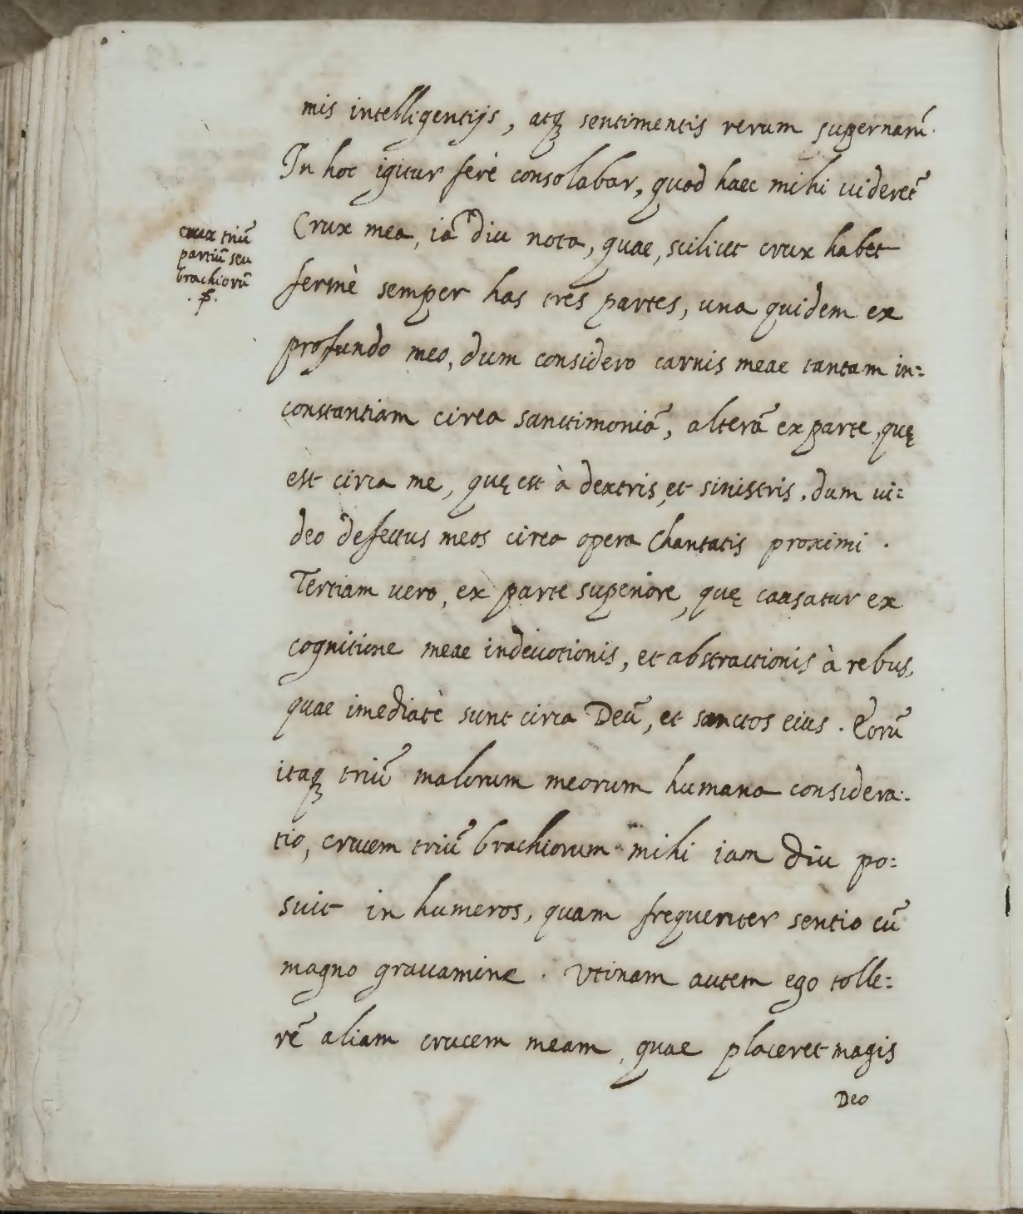 mis intelligentijs, atqꝫ sentimentis rerum supernarũ.
In hoc igitur ferè consolabar, quod haec mihi uideret̃
Crux mea, iã diu nota, quae, scilicet crux habet
fermè semper has tres partes, una quidem ex
profundo meo, dum considero carnis meae tantam in=
constantiam circa sanctimoniã, alterã ex parte, quę
est circa me, quę est à dextris, et sinistris, dum ui=
deo defectus meos circa opera Charitatis proximi.
Tertiam uero, ex parte superiore, quę causatur ex
cognitione meae indeuotionis, et abstractionis à rebus,
quae imediatè sunt circa Deũ, et sanctos eius. Eorũ
itaqꝫ triũ malorum meorum humana considera=
tio, crucem triũ brachiorum mihi iam diu po=
suit in humeros, quam frequenter sentio cũ
magno grauamine. Vtinam autem ego tolle=
rẽ aliam crucem meam, quae placeret magis
Deo
crux triũ
partiũ seu
brachiorũ